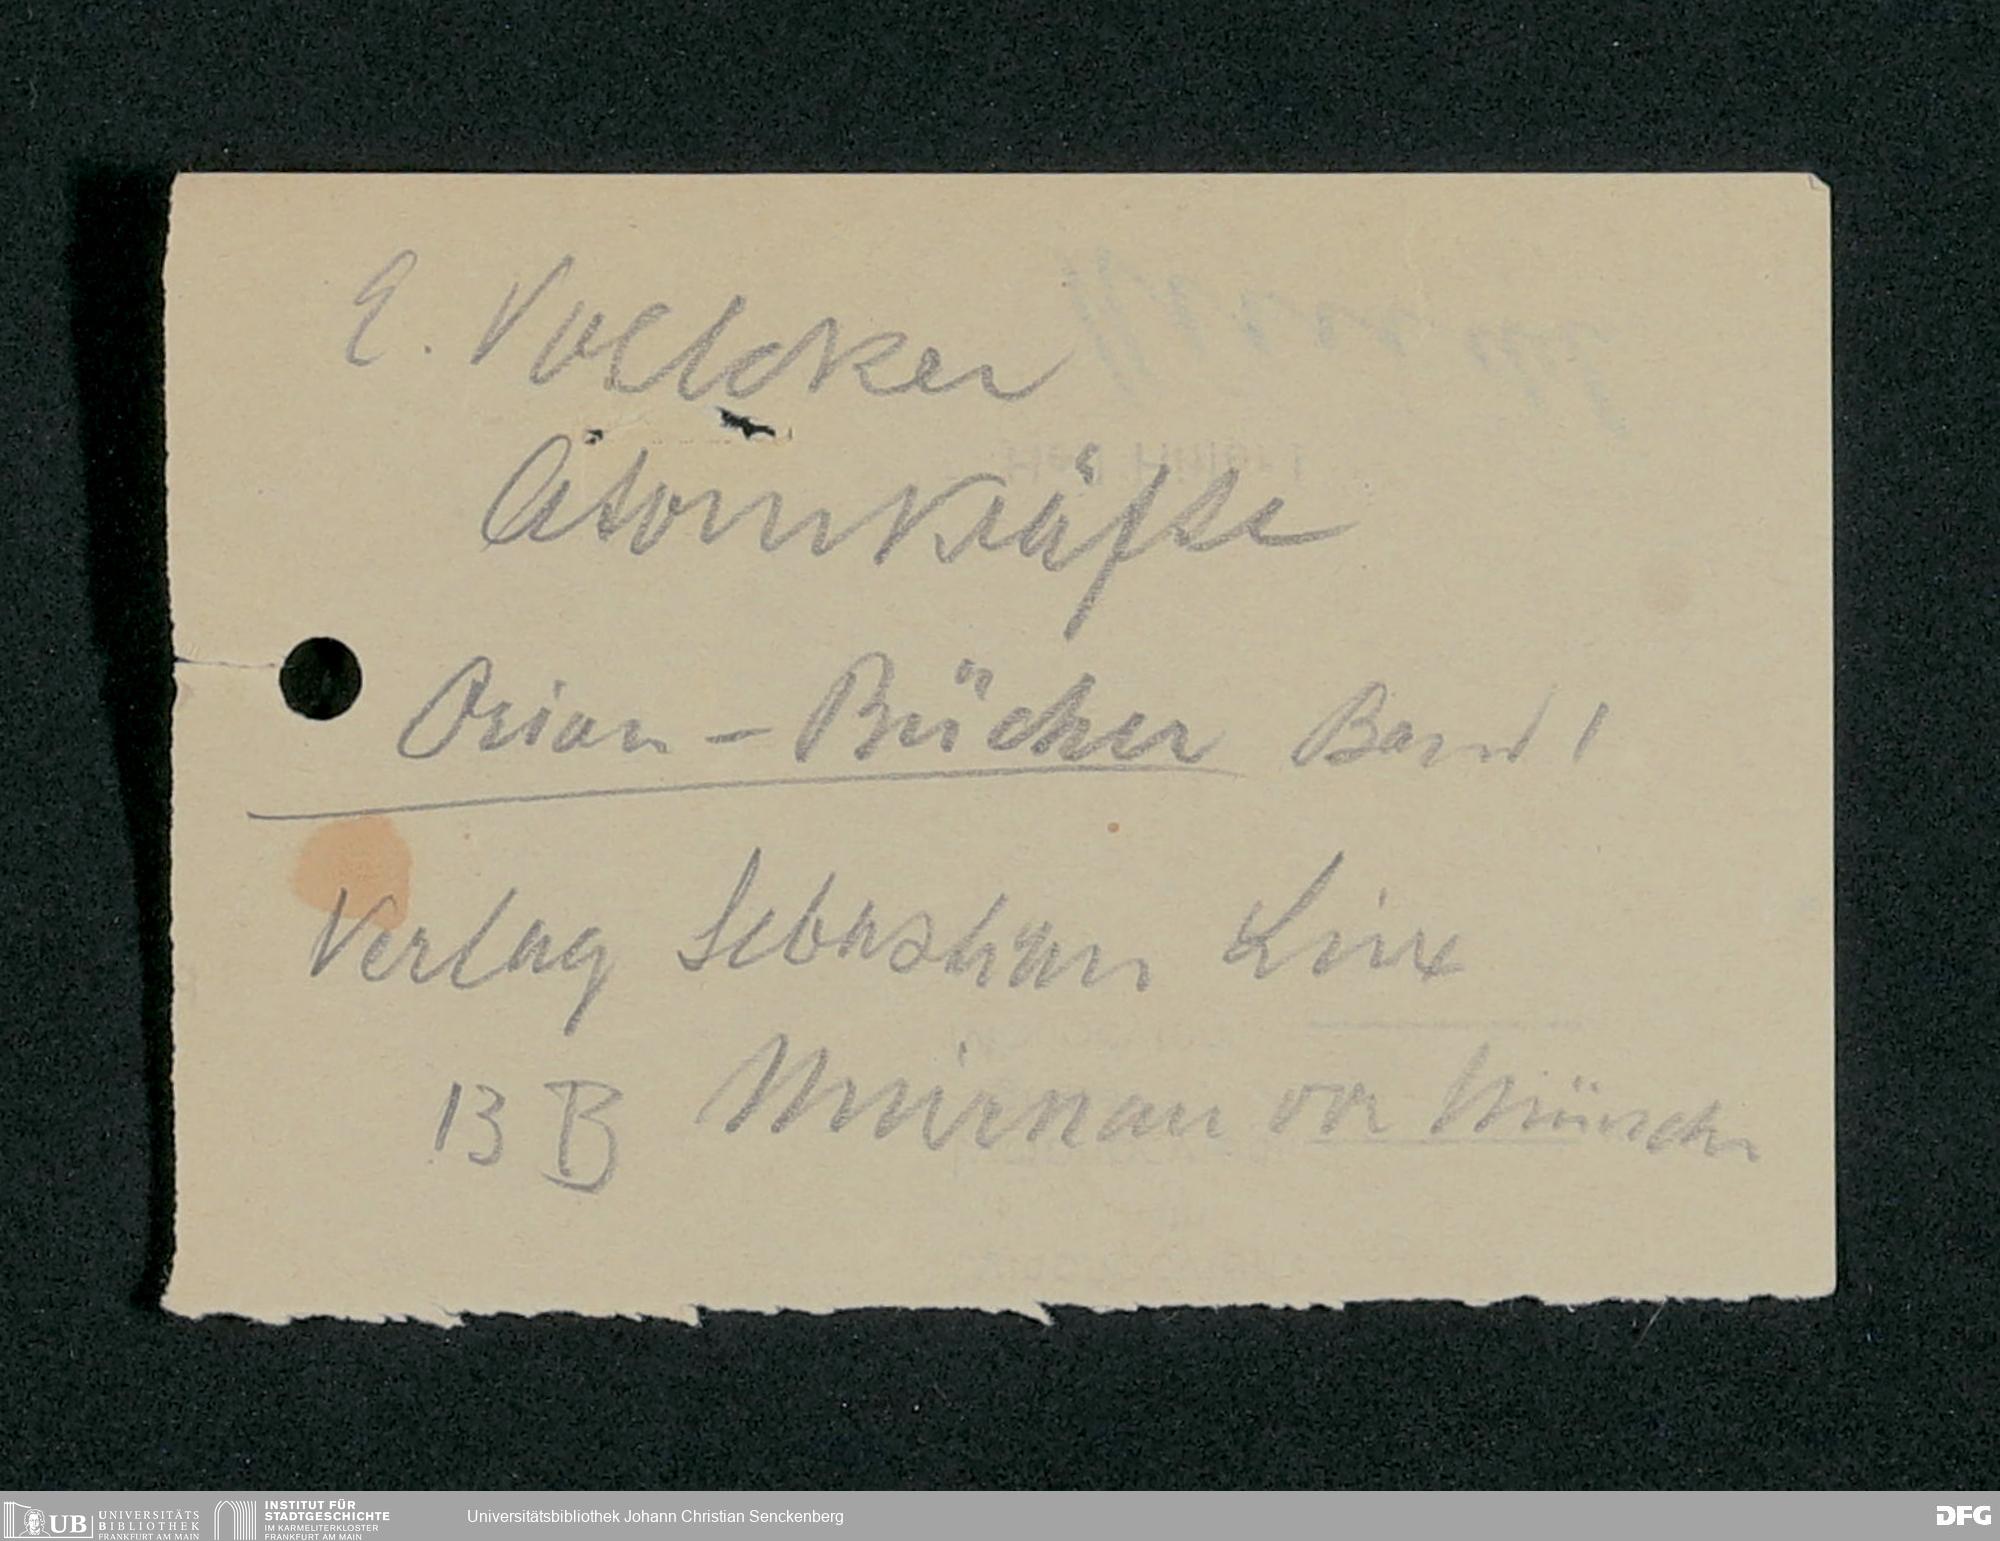 E. Voelcker
Atomkräfte
Orion - Bücher Band 1
Verlag Sebastian Lux
13 B Murnau vor München
UB UNIVERSITÄTS
BIBLIOTHEK
FRANKFURT AM MAIN
INSTITUT FÜR
STADTGESCHICHTE
IM KARMELITERKLOSTER
FRANKFURT AM MAIN
Universitätsbibliothek Johann Christian Senckenberg
DFG